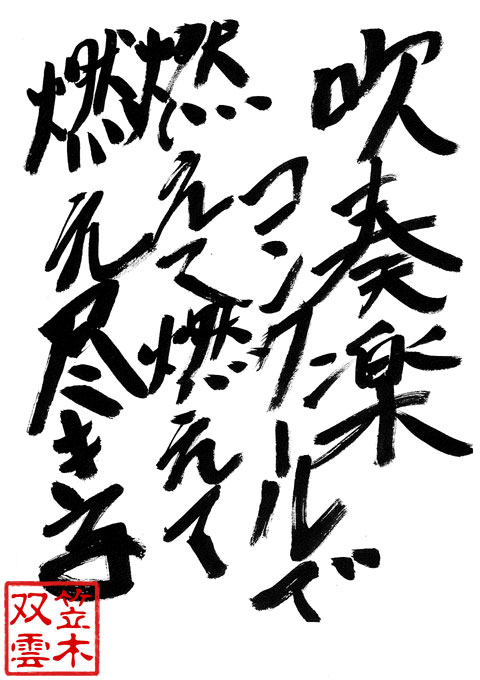 吹奏楽
コンクールで
燃えて燃えて
燃え尽き
笠木
双雲